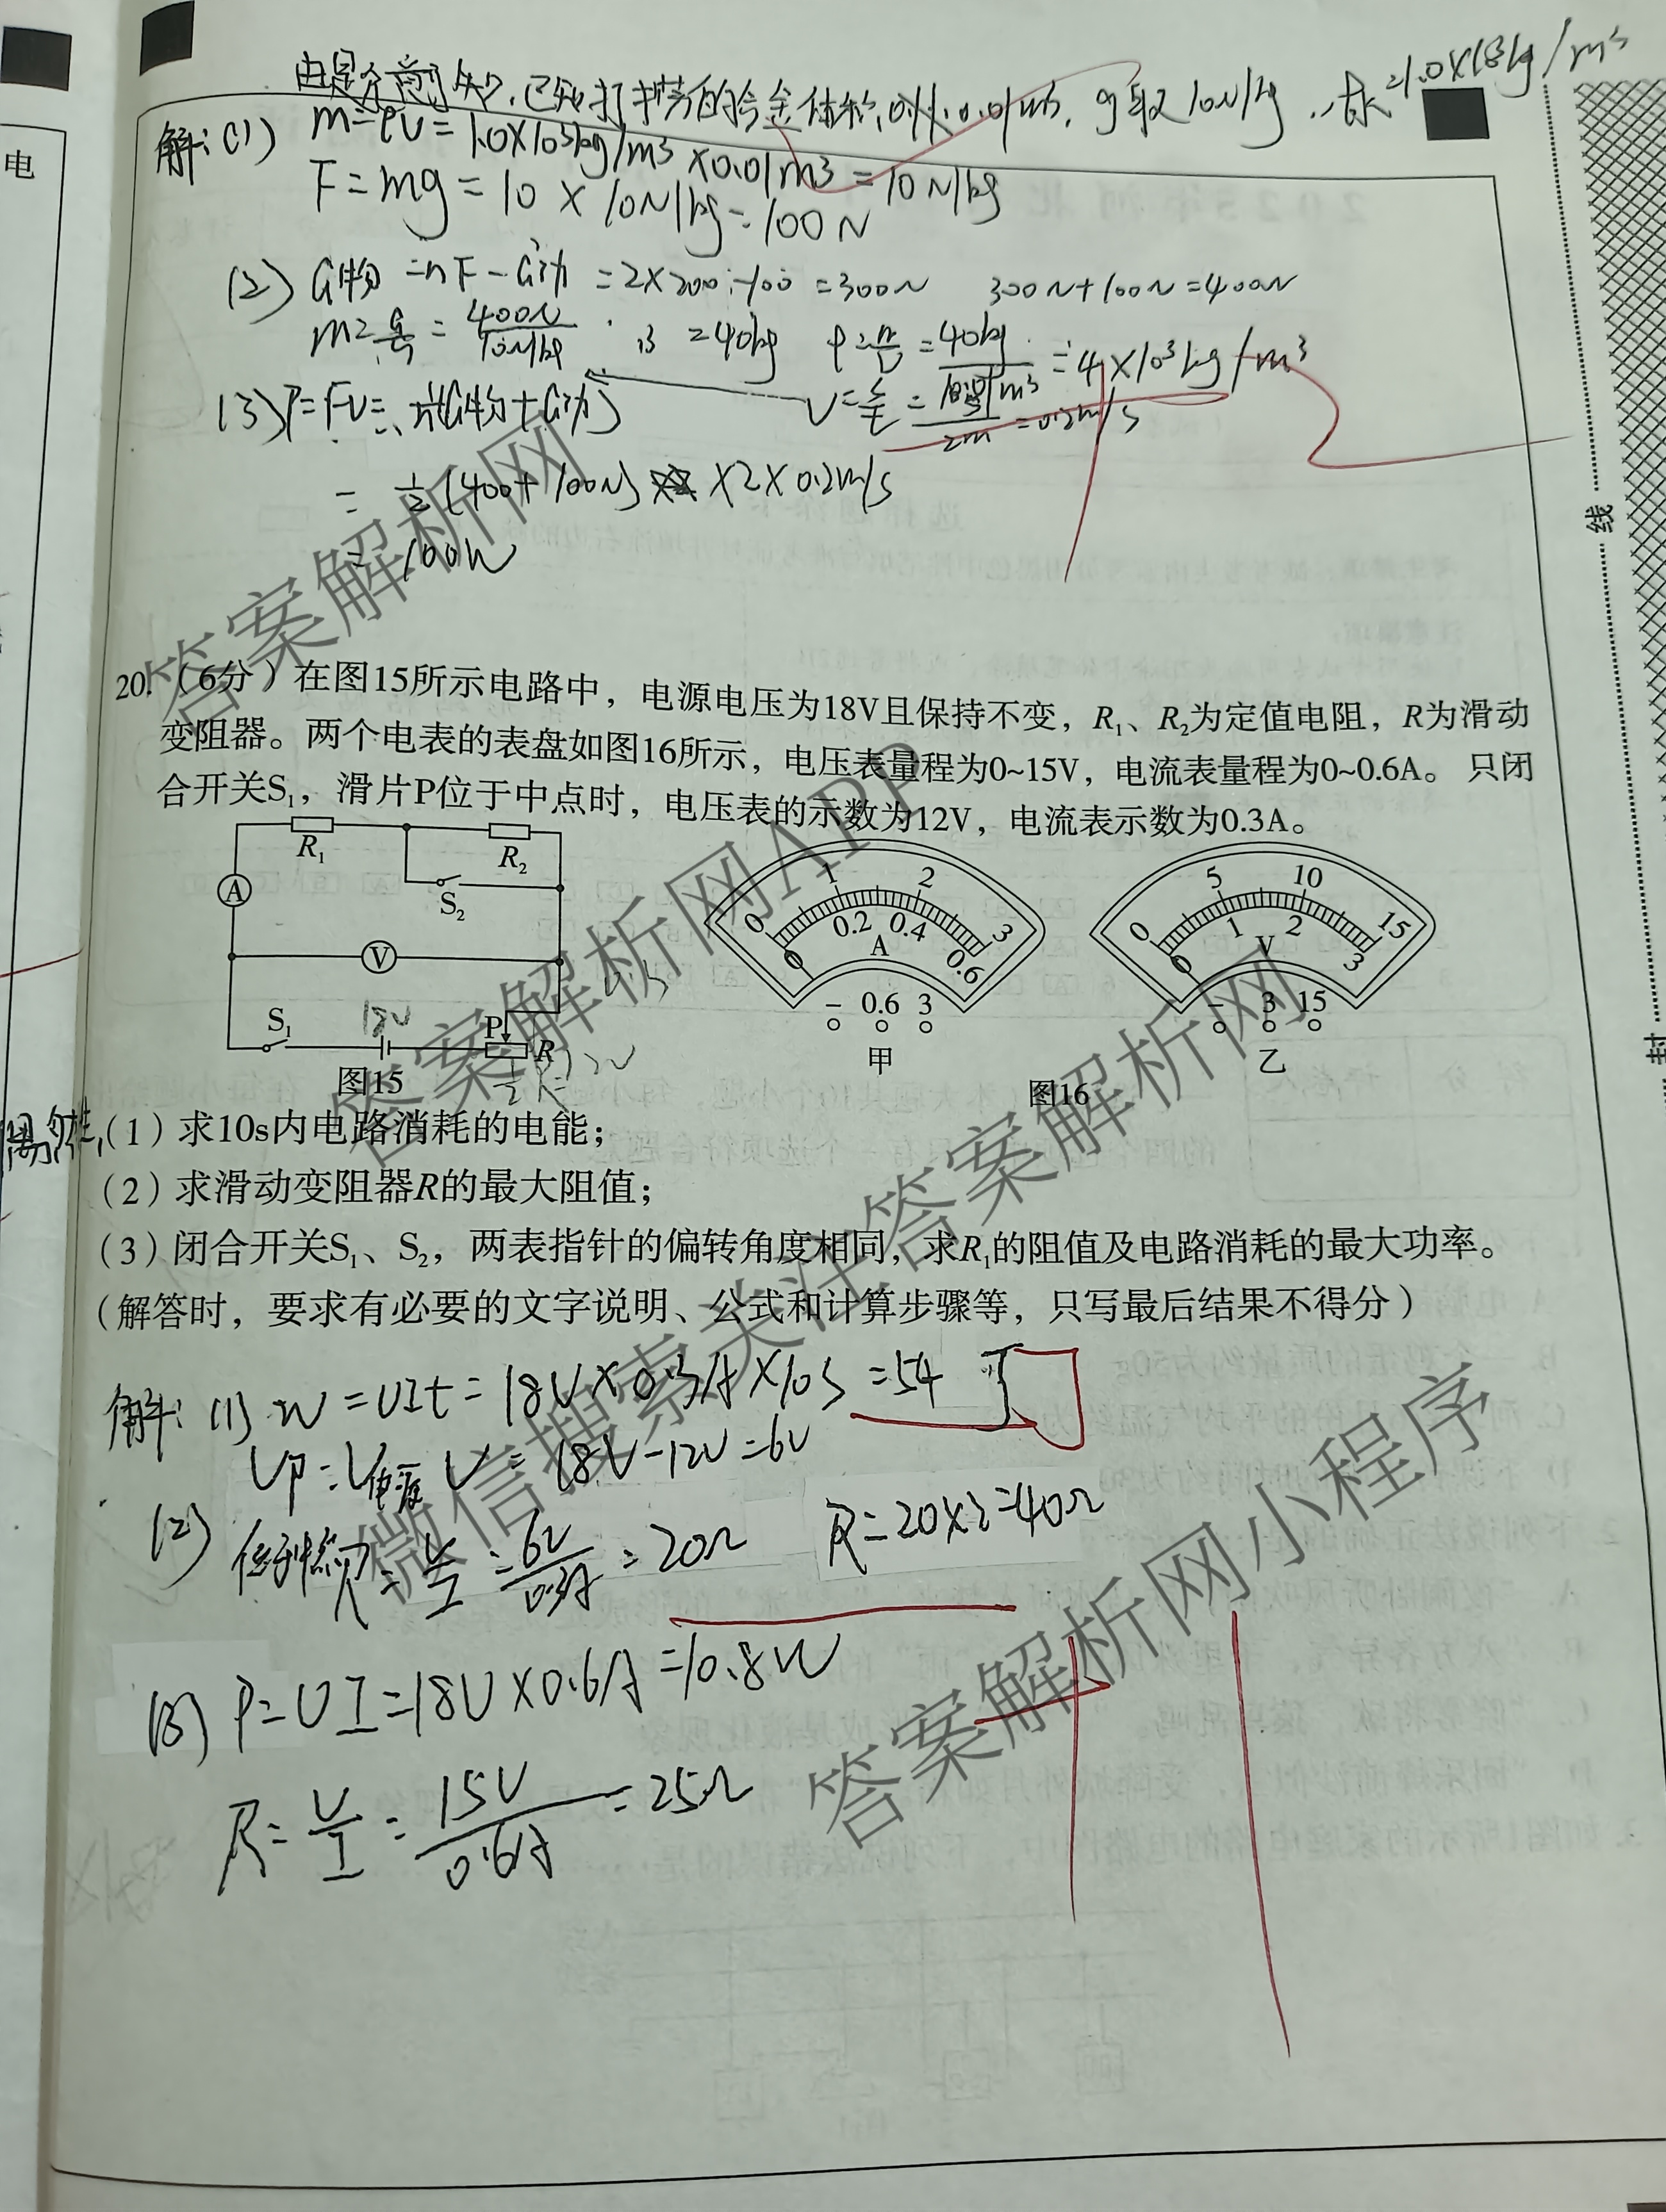 电
解:(1) m=ρV=1.0×10³kg/m³×0.01m³=10N/kg
F=mg=10×10N/kg=100N
(2) G物=nF-G动=2×200-100=300N 300N+100N=400N
=40kg
=4×10³kg/m³
=0.2m/s
(3)P=Fv=
=½(400+100N)×2×0.2m/s
=100W
20.（6分）在图15所示电路中，电源电压为18V且保持不变，R₁、R₂为定值电阻，R为滑动
变阻器。两个电表的表盘如图16所示，电压表量程为0~15V，电流表量程为0~0.6A。只闭
合开关S₁，滑片P位于中点时，电压表的示数为12V，电流表示数为0.3A。
R₁ R₂
A
S₂
V
S₁ 18V P R
图15
0 1 2 3
0 0.2 0.4 0.6
A
- 0.6 3
甲
0 5 10 15
0 1 2 3
V
- 3 15
乙
图16
（1）求10s内电路消耗的电能；
（2）求滑动变阻器R的最大阻值；
（3）闭合开关S₁、S₂，两表指针的偏转角度相同，求R₁的阻值及电路消耗的最大功率。
（解答时，要求有必要的文字说明、公式和计算步骤等，只写最后结果不得分）
解:(1) W=UIt=18V×0.3A×10s=54J
UP=U电源 U=18V-12V=6V
(2) R=U/I=6V/0.3A=20Ω R=20×2=40Ω
(3) P=UI=18V×0.6A=10.8W
R=U/I=15V/0.6A=25Ω
线
封
答案解析网
答案解析网APP
微信搜索关注答案解析网
答案解析网小程序